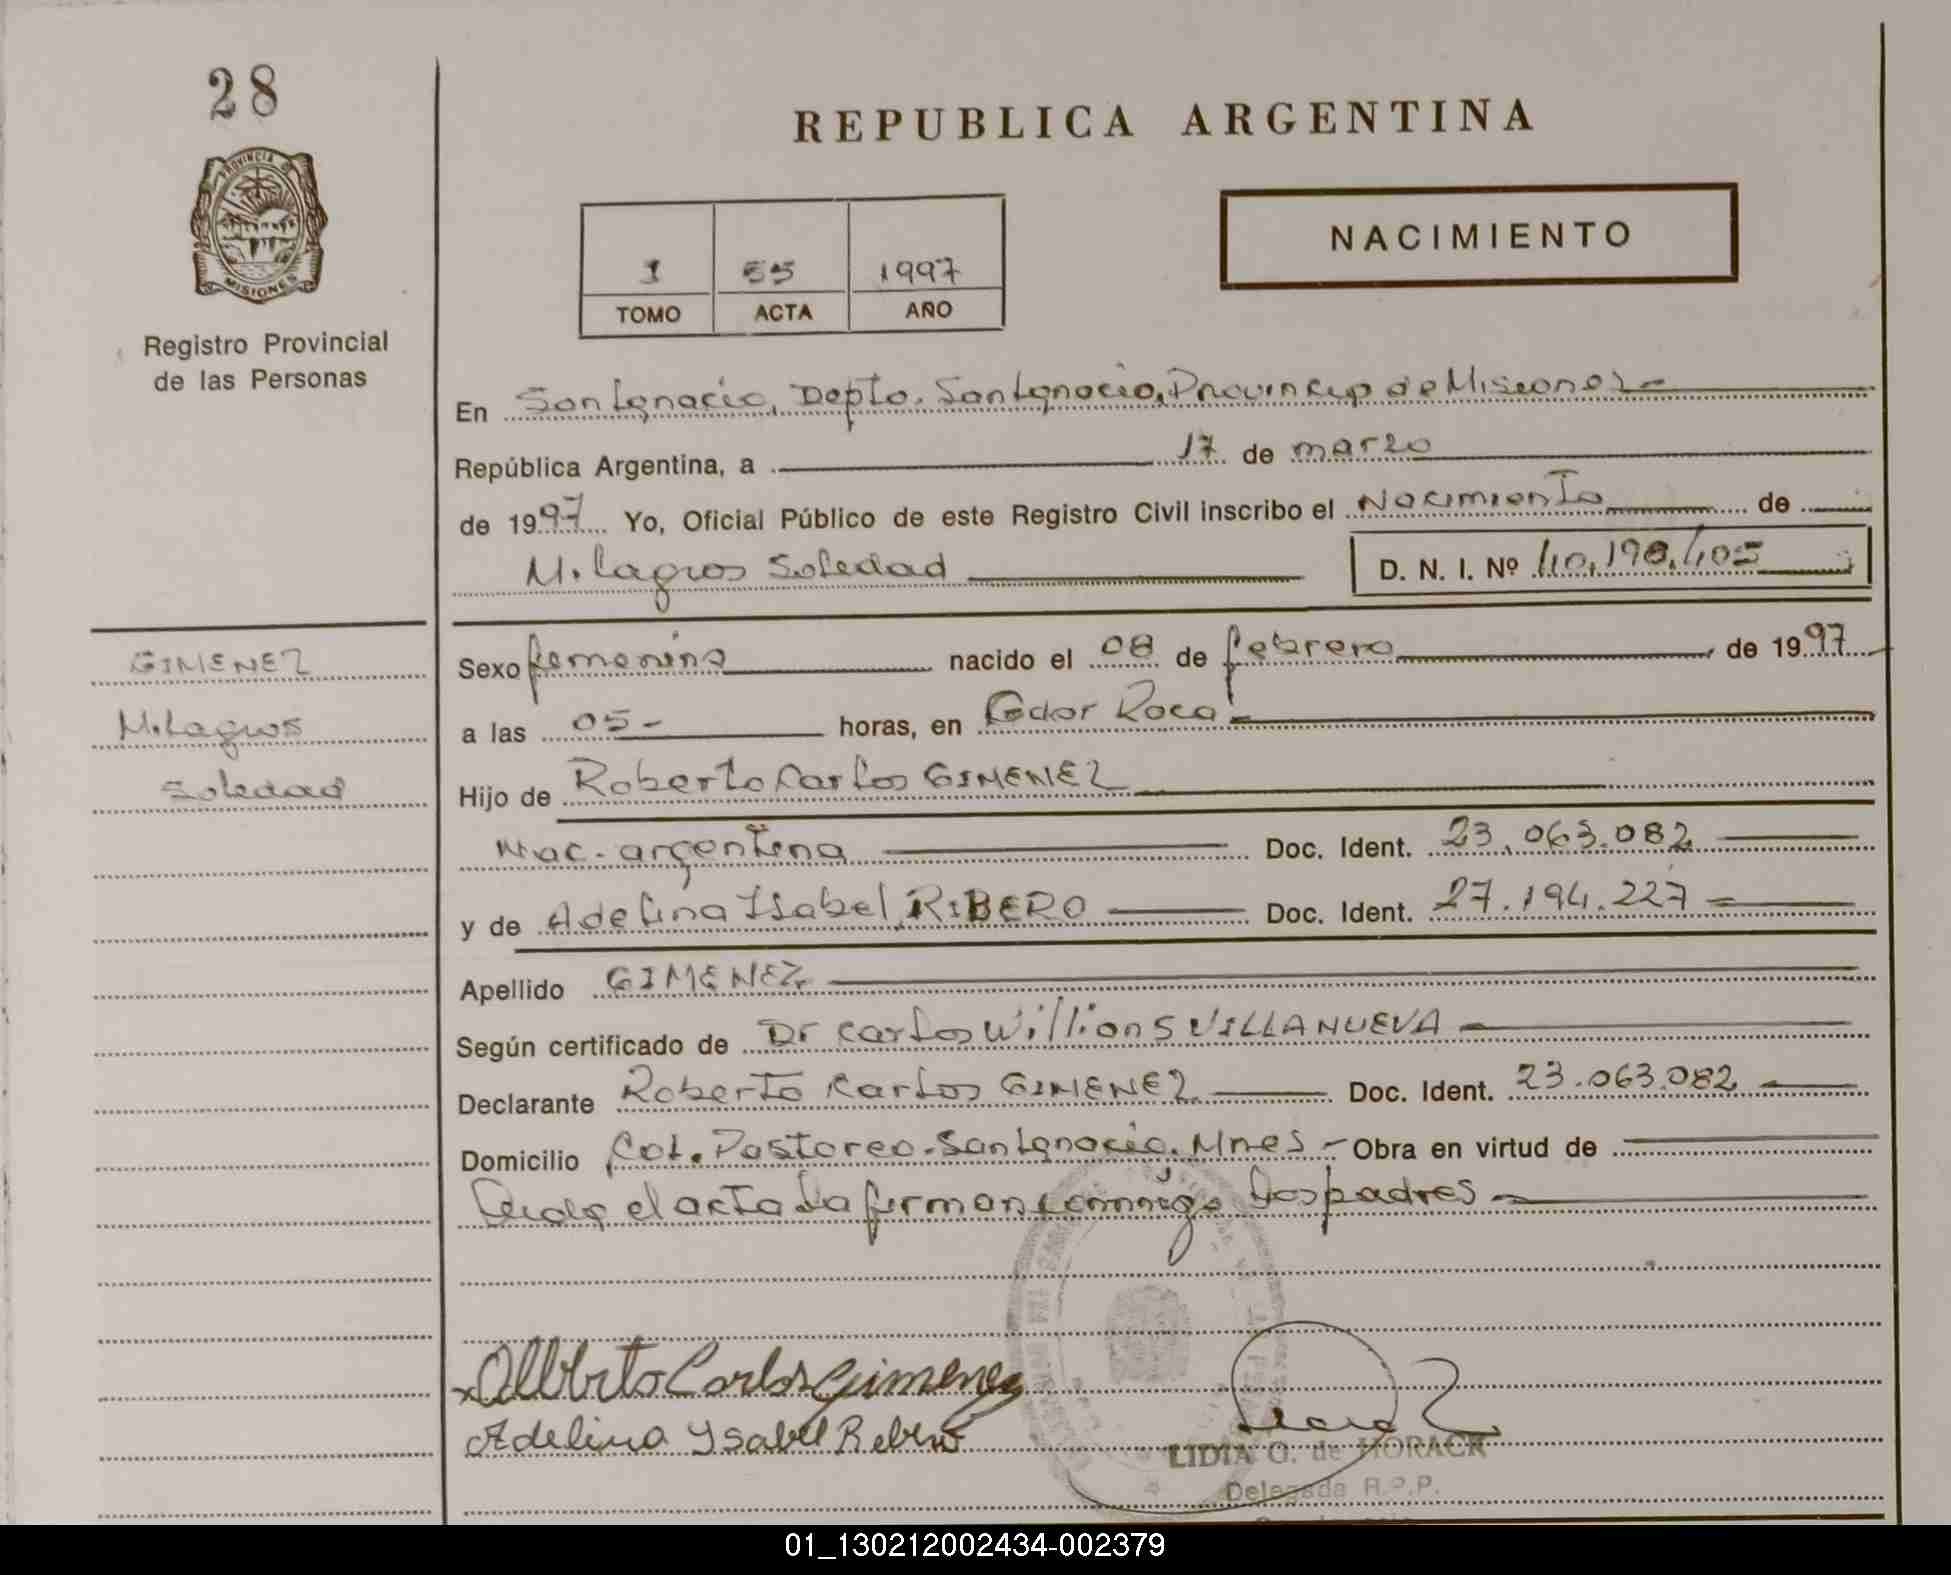 28
REPUBLICA ARGENTINA
PROVINCIA D
MISIONES
Registro Provincial
de las Personas
NACIMIENTO
1 55 1997
TOMO ACTA AÑO
En San Ignacio, Depto. San Ignacio, Provincia de Misiones
República Argentina, a 17 de marzo
de 1997 Yo, Oficial Público de este Registro Civil inscribo el Nacimiento de
Milagros Soledad D. N. I. Nº 40.198.405
GIMENEZ
Milagros
Soledad
Sexo femenino nacido el 08 de febrero de 1997
a las 05- horas, en Gdor Roca
Hijo de Roberto Carlos GIMENEZ
Nac. argentina Doc. Ident. 23.063.082
y de Adelina Isabel RIBERO Doc. Ident. 27.194.227
Apellido GIMENEZ
Según certificado de Dr Carlos Willians VILLANUEVA
Declarante Roberto Carlos GIMENEZ Doc. Ident. 23.063.082
Domicilio Col. Pastoreo-San Ignacio. Mnes - Obra en virtud de
el acta la firman conmigo los padres
Carlos Gimenez
Adelina Ysabel Ribero
LIDIA O. de HORACK
Delegada R.P.P.
01_130212002434-002379